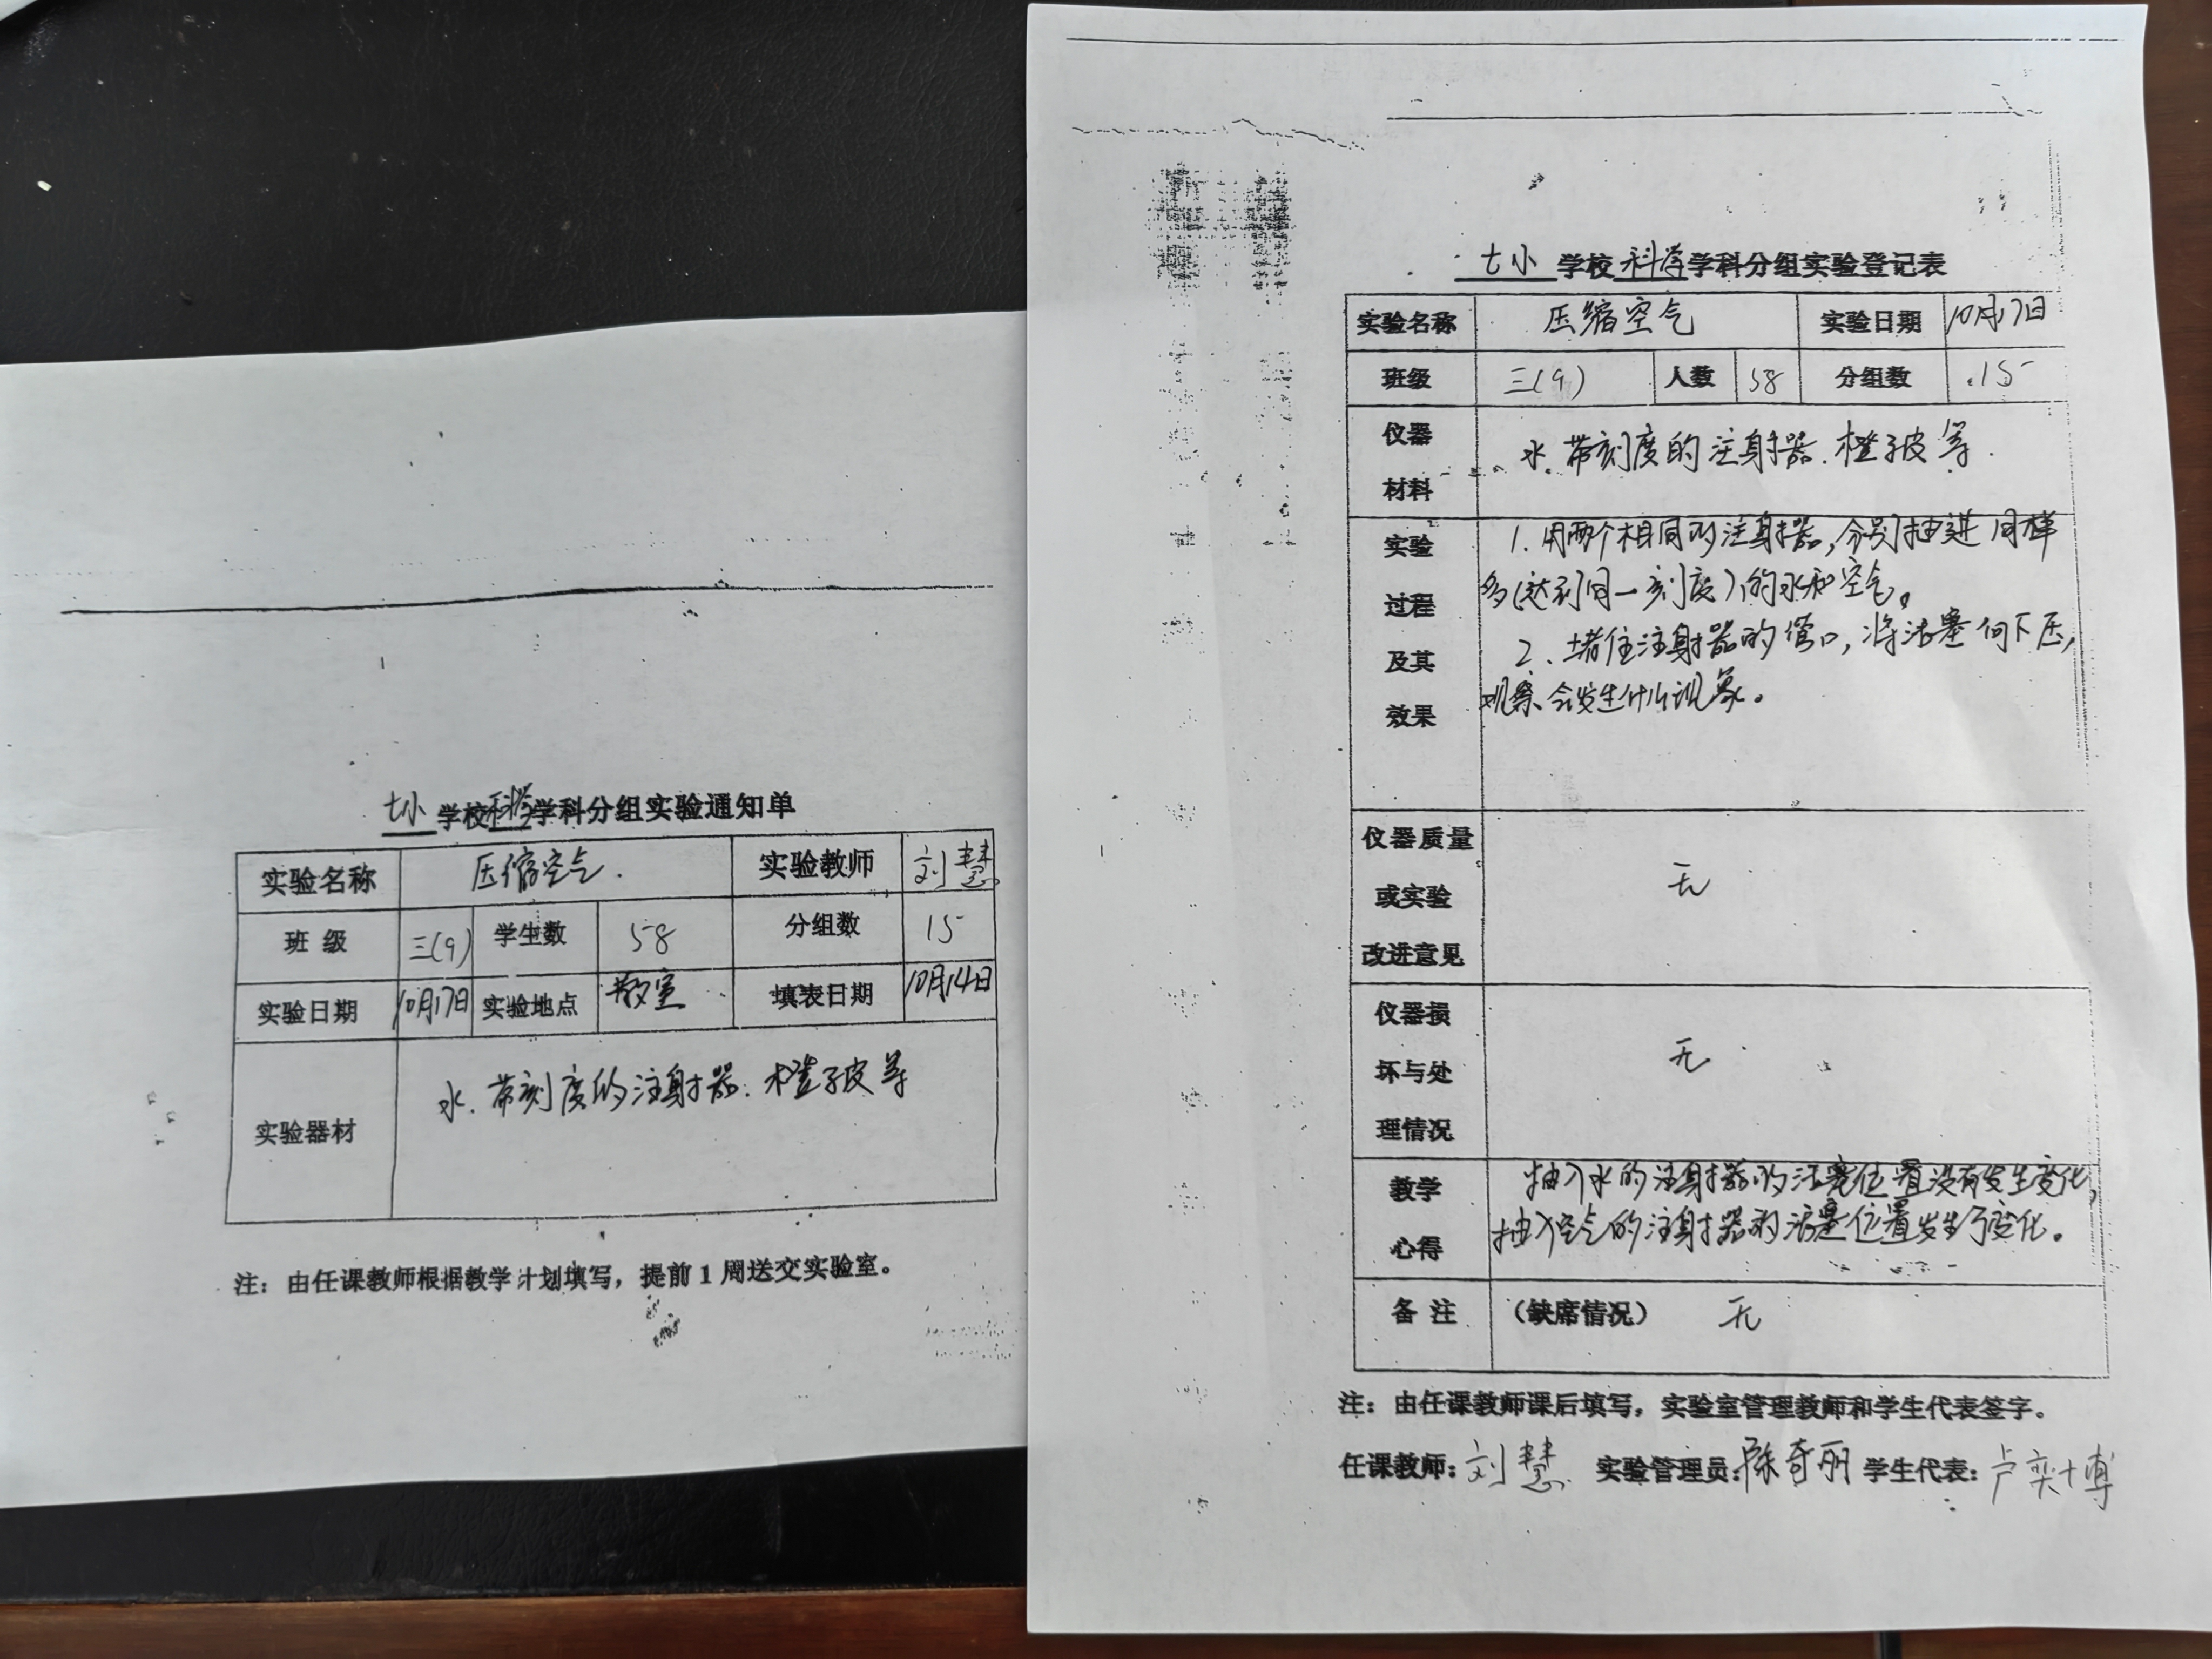 七小学校科学学科分组实验通知单
实验名称 压缩空气. 实验教师 刘慧
班 级 三(9) 学生数 58 分组数 15
实验日期 10月17日 实验地点 教室 填表日期 10月14日
实验器材 水.带刻度的注射器.橙子皮等
注：由任课教师根据教学计划填写，提前1周送交实验室。
七小学校科学学科分组实验登记表
实验名称 压缩空气 实验日期 10月17日
班级 三(9) 人数 58 分组数 15
仪器
材料
水.带刻度的注射器.橙子皮等.
实验
过程
及其
效果
1.用两个相同的注射器,分别抽进同样
多(达到同一刻度)的水和空气。
2、堵住注射器的管口,将活塞向下压,
观察会发生什么现象。
仪器质量
或实验
改进意见
无
仪器损
坏与处
理情况
无
教学
心得
抽入水的注射器的活塞位置没有发生变化,
抽入空气的注射器的活塞位置发生了变化。
备 注 （缺席情况） 无
注：由任课教师课后填写，实验室管理教师和学生代表签字。
任课教师：刘慧 实验管理员：陈奇丽 学生代表：卢奕博